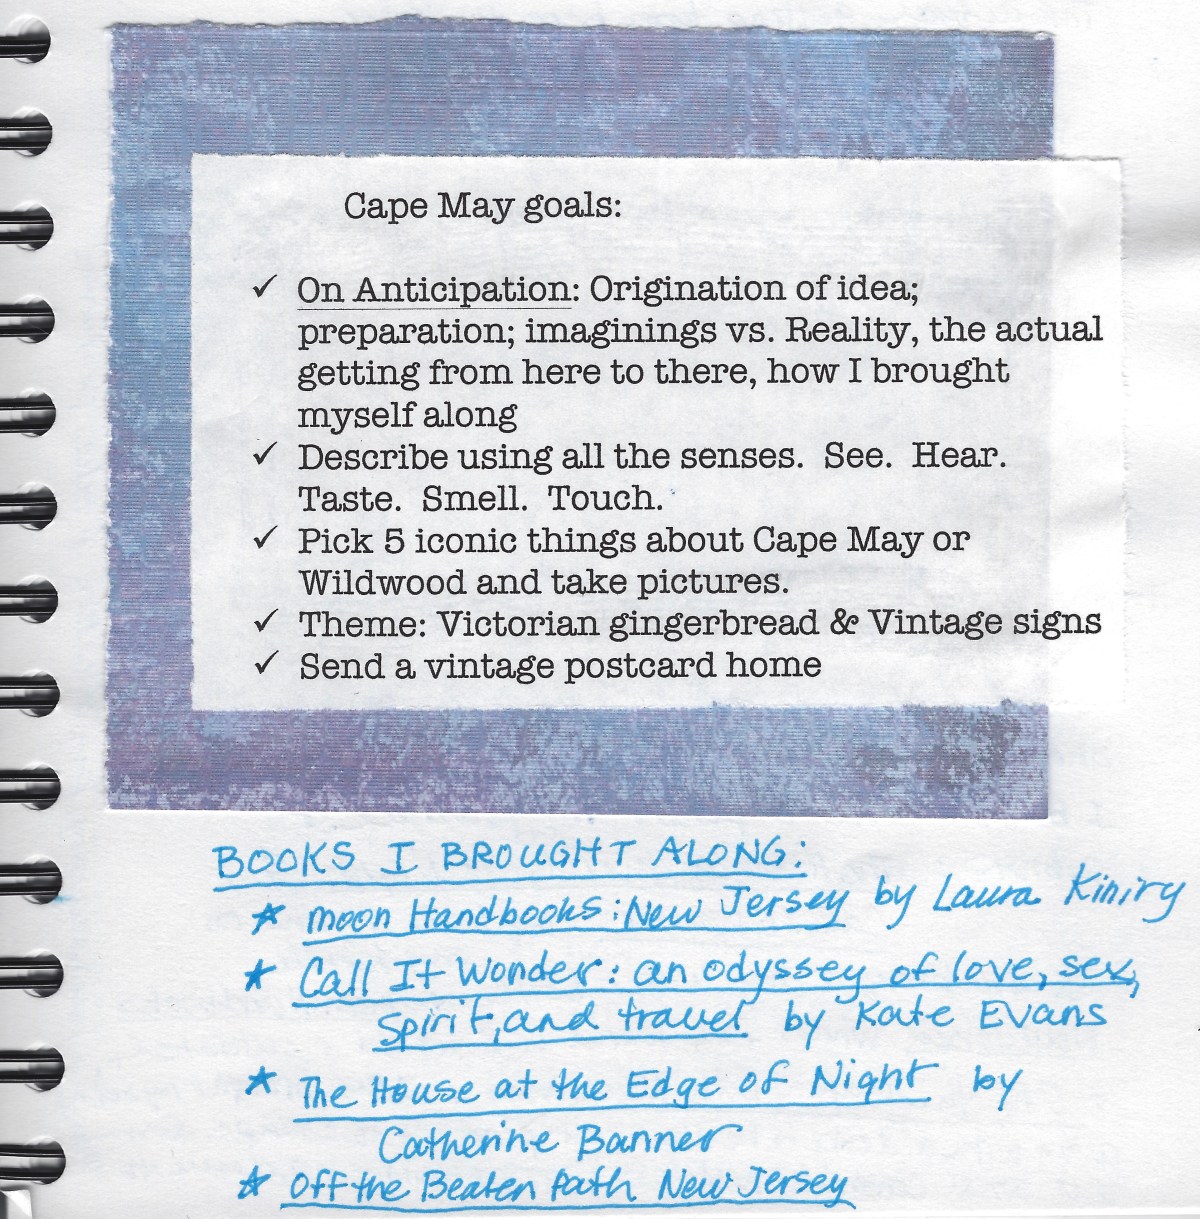 Cape May goals:
✓ On Anticipation: Origination of idea;
preparation; imaginings vs. Reality, the actual
getting from here to there, how I brought
myself along
✓ Describe using all the senses.  See.  Hear.
Taste.  Smell.  Touch.
✓ Pick 5 iconic things about Cape May or
Wildwood and take pictures.
✓ Theme: Victorian gingerbread & Vintage signs
✓ Send a vintage postcard home
BOOKS I BROUGHT ALONG:
★ Moon Handbooks: New Jersey by Laura Kiniry
★ Call It Wonder: an odyssey of love, sex,
spirit, and travel by Kate Evans
★ The House at the Edge of Night by
Catherine Banner
★ Off the Beaten Path New Jersey